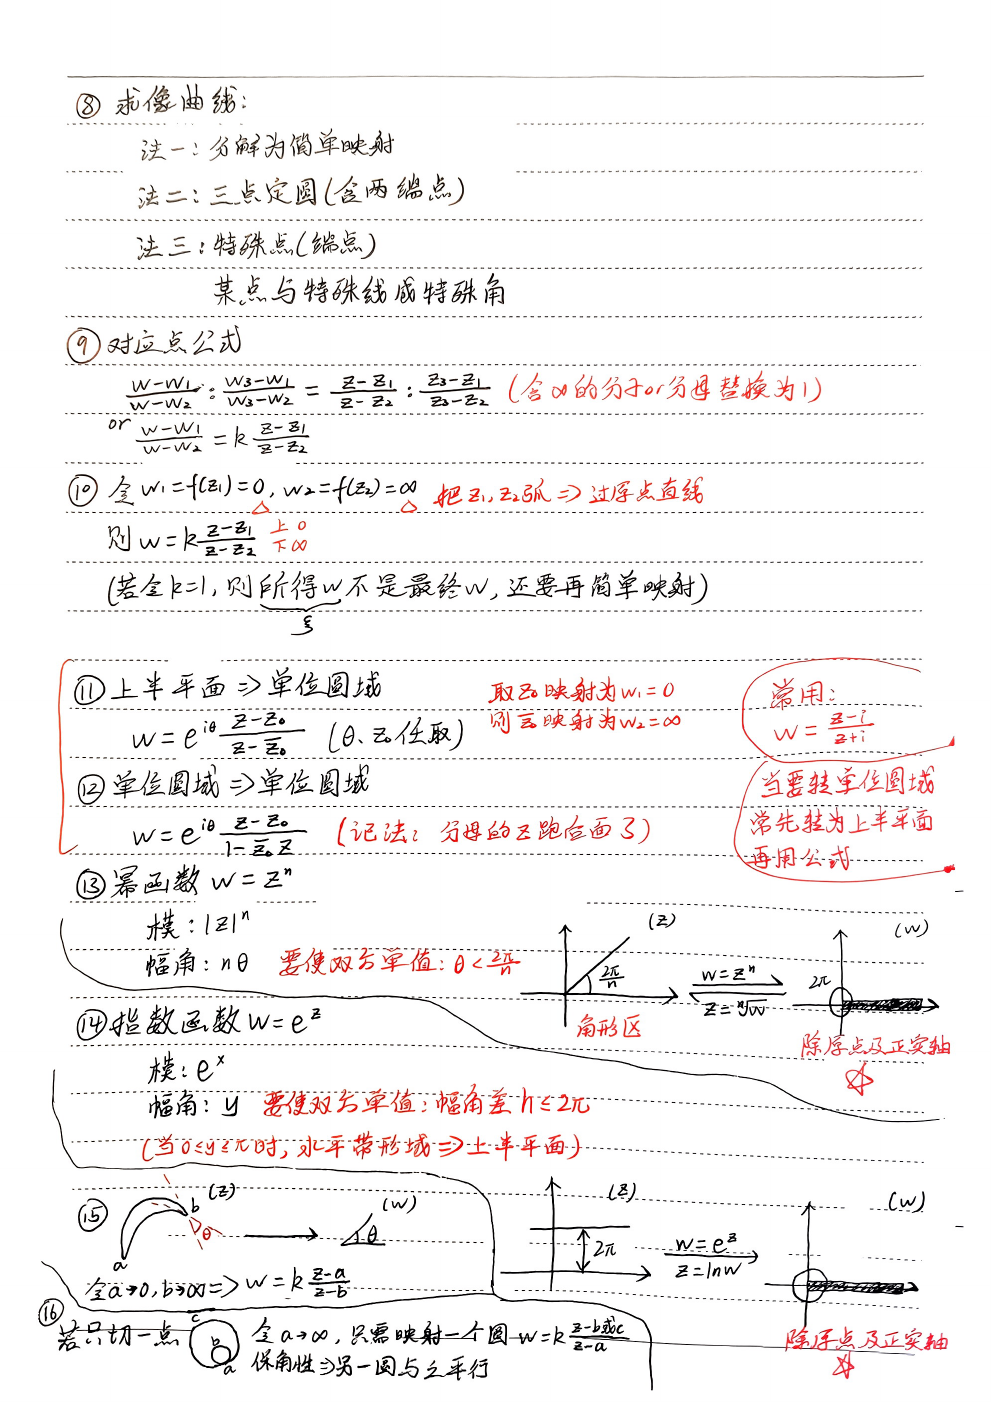 ⑧ 求像曲线:
法一:分解为简单映射
法二:三点定圆(含两端点)
法三:特殊点(端点)
某点与特殊线成特殊角
⑨ 对应点公式
(w-w₁)/(w-w₂) : (w₃-w₁)/(w₃-w₂) = (z-z₁)/(z-z₂) : (z₃-z₁)/(z₃-z₂) (含∞的分子or分母替换为1)
or (w-w₁)/(w-w₂) = k (z-z₁)/(z-z₂)
⑩ 令 w₁=f(z₁)=0, w₂=f(z₂)=∞ 把z₁,z₂弧⇒过原点直线
则 w=k (z-z₁)/(z-z₂) 上0 下∞
(若令k=1, 则所得w不是最终w, 还要再简单映射)
ξ
⑪ 上半平面⇒单位圆域
w=e^{iθ} (z-z₀)/(z-z̄₀) (θ、z₀任取)
取z₀映射为w₁=0
则z̄₀映射为w₂=∞
常用:
w = (z-i)/(z+i)
⑫ 单位圆域⇒单位圆域
w=e^{iθ} (z-z₀)/(1-z̄₀z) (记法:分母的z跑后面了)
当要转单位圆域
常先转为上半平面
再用公式
⑬ 幂函数 w=zⁿ
模:|z|ⁿ
幅角:nθ 要使双方单值:θ<2π/n
(z)
2π/n
角形区
w=zⁿ
z=ⁿ√w
(w)
2π
除原点及正实轴
☆
⑭ 指数函数 w=e^z
模:e^x
幅角:y 要使双方单值:幅角差h≤2π
(当0≤y≤π时,水平带形域⇒上半平面)
(z)
2π
w=e^z
z=lnw
(w)
除原点及正实轴
☆
⑮ a b (z) θ (w) θ
令a→0,b→∞⇒ w=k (z-a)/(z-b)
⑯ 若只切一点 c b a
令a→∞, 只需映射一个圆 w=k (z-b或c)/(z-a)
保角性⇒另一圆与之平行